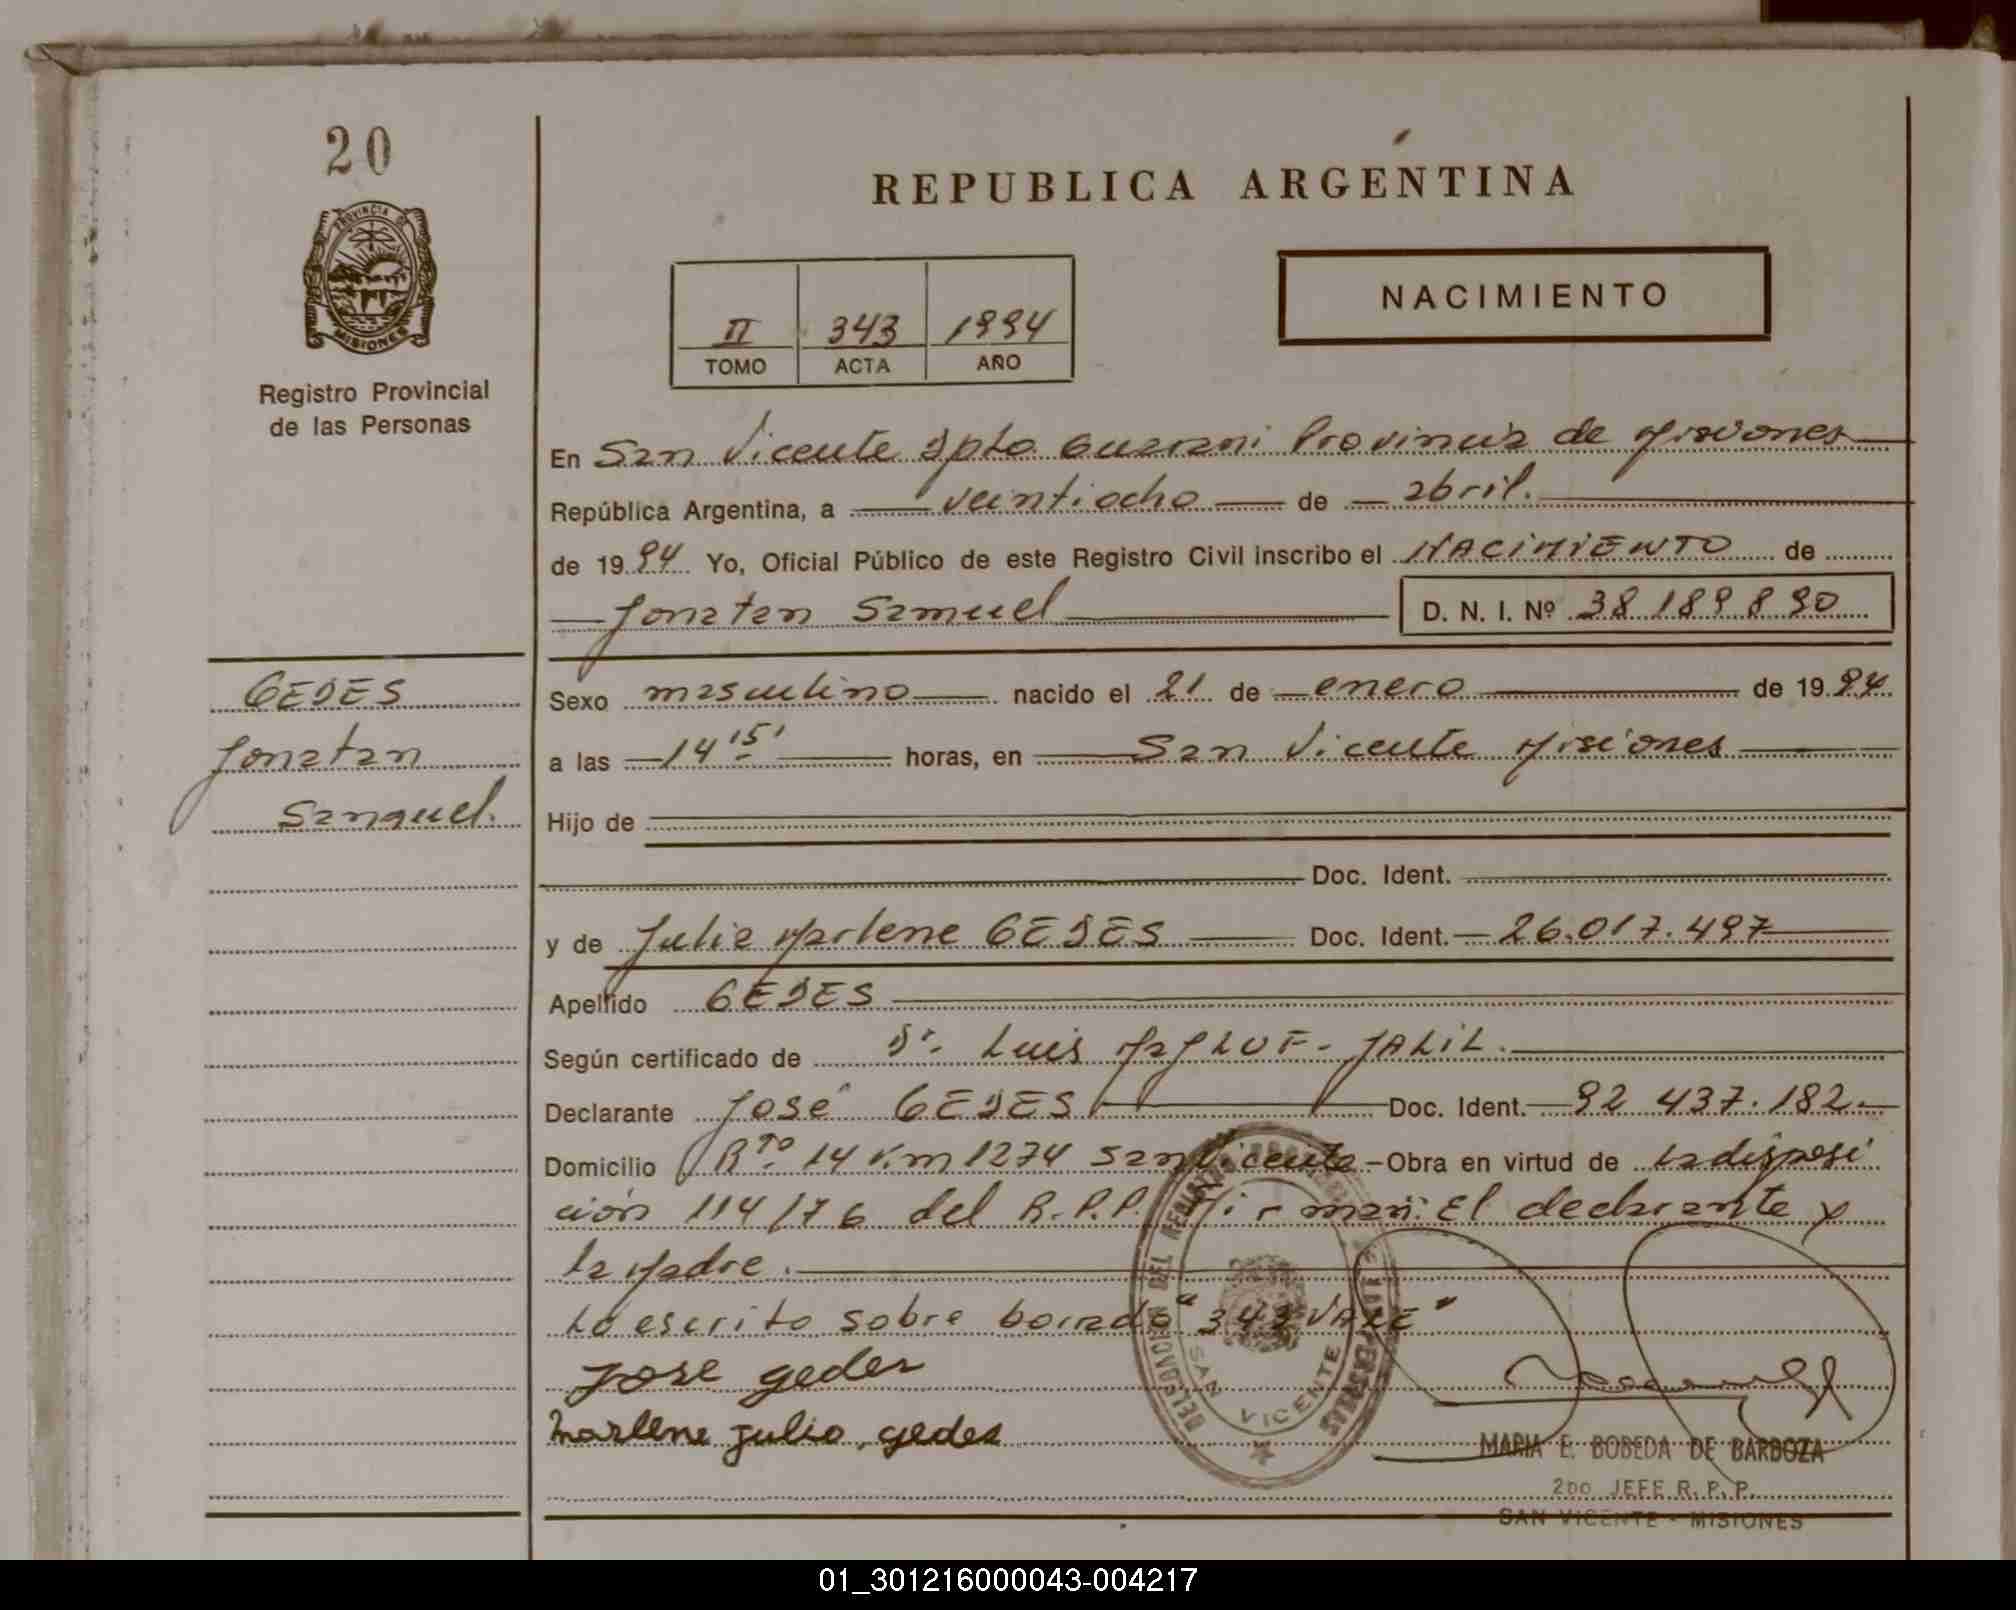 20
PROVINCIA DE
MISIONES
Registro Provincial
de las Personas
REPUBLICA ARGENTINA
NACIMIENTO
II 343 1994
TOMO ACTA AÑO
En San Vicente Dpto Guarani Provincia de Misiones
República Argentina, a veintiocho de abril.
de 1994 Yo, Oficial Público de este Registro Civil inscribo el NACIMIENTO de
Jonatan Samuel D. N. I. Nº 38 189 890
GEDES
Jonatan
Samuel.
Sexo masculino nacido el 21 de enero de 1994
a las 14 15' horas, en San Vicente Misiones
Hijo de
Doc. Ident.
y de Julia Marlene GEDES Doc. Ident. 26.017.497
Apellido GEDES
Según certificado de Dr. Luis JALIL.
Declarante José GEDES Doc. Ident. 92 437.182.
Domicilio Rta. 14 Km 1274 San Vicente - Obra en virtud de la disposi
ción 114/76 del R.P.P. Firman: El declarante y
la Madre.
Lo escrito sobre borrado "343 VALE"
Jose gedes
Marlene Julio gedes
DELEGACION DEL REGISTRO DE LAS PERSONAS
SAN VICENTE
MARIA E. BOBEDA DE BARBOZA
2DO JEFE R. P. P.
SAN VICENTE - MISIONES
01_301216000043-004217